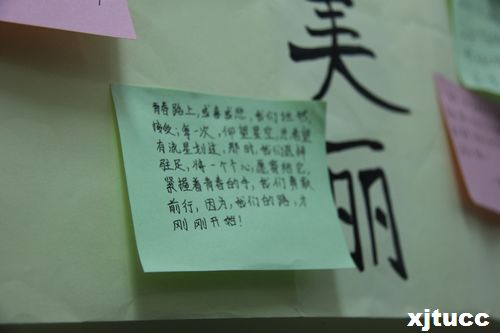 美丽
青春路上,或喜或悲,我们坦然
接收;每一次,仰望星空,总希望
有流星划过,那时,我们会静静
驻足,将一个个心愿寄给它,
紧握着青春的手,我们勇敢
前行,因为,我们的路,才
刚刚开始!
xjtucc